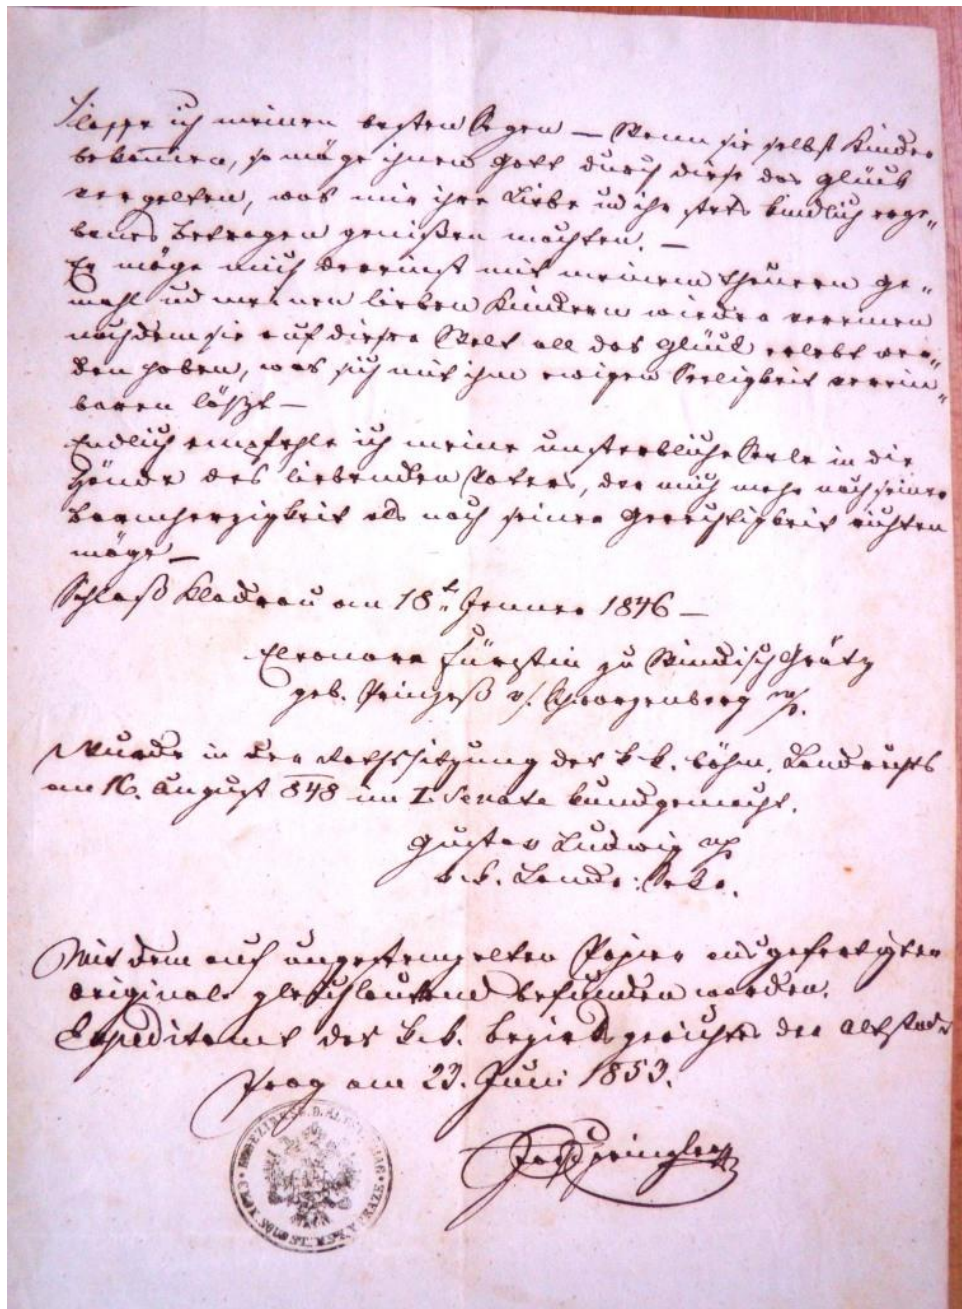 ich meinen besten Segen — Wenn sie selbst Kinder
bekommen, so möge ihnen Gott durch diese das Glück
vergelten, was mir ihre Liebe und ihr stets kindlich erge„
benes Betragen genißen machten. —
Er möge mich dereinst mit meinem theuern Ge„
mahl und meinen lieben Kindern wieder vereinen
nachdem sie auf dieser Welt all das Glück erlebt wer„
den haben, was sich mit ihrer ewigen Seeligkeit verein„
baren läßt —
Endlich empfehle ich meine unsterbliche Seele in die
Hände des liebenden Vaters, der mich mehr nach seiner
Barmherzigkeit als nach seiner Gerechtigkeit richten
möge —
Schloß Kladrau am 18t Jenner 1846 —
Eleonora Fürstin zu Windisch Grätz
geb. Prinzeß v. Schwarzenberg mp.
Wurde in der Rathssitzung des k. k. böhm. Landrechts
am 16. August 848 im I. Senate kundgemacht.
Gustav Ludwig mp
k. k. Landr. Sekr.
Mit dem auf ungestempelten Papier ausgefertigten
Originale gleichlautend befunden worden.
Expeditamt des k. k. Bezirksgerichtes der Altstadt
Prag am 23. Juni 1853.